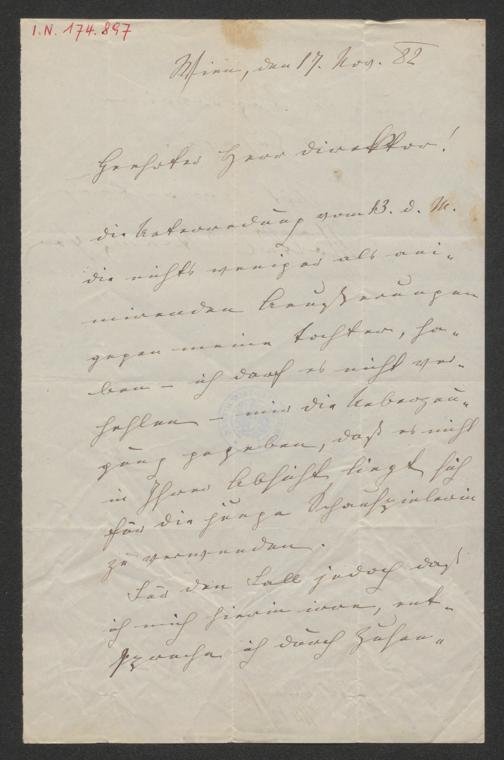 I.N. 174.897
Wien, den 17. Nov. 82
Geehrter Herr Direktor!
die Unterredung vom 13. d. M.
die nichts weniger als ani-
mirenden Aeußerungen
gegen meine Tochter, ha-
ben – ich darf es nicht ver-
hehlen – mir die Ueberzeu-
gung gegeben, daß es nicht
in Ihrer Absicht liegt, sich
für die junge Schauspielerin
zu verwenden.
Für den Fall jedoch daß
ich mich hierin irre, ent-
spreche ich durch Zusen-